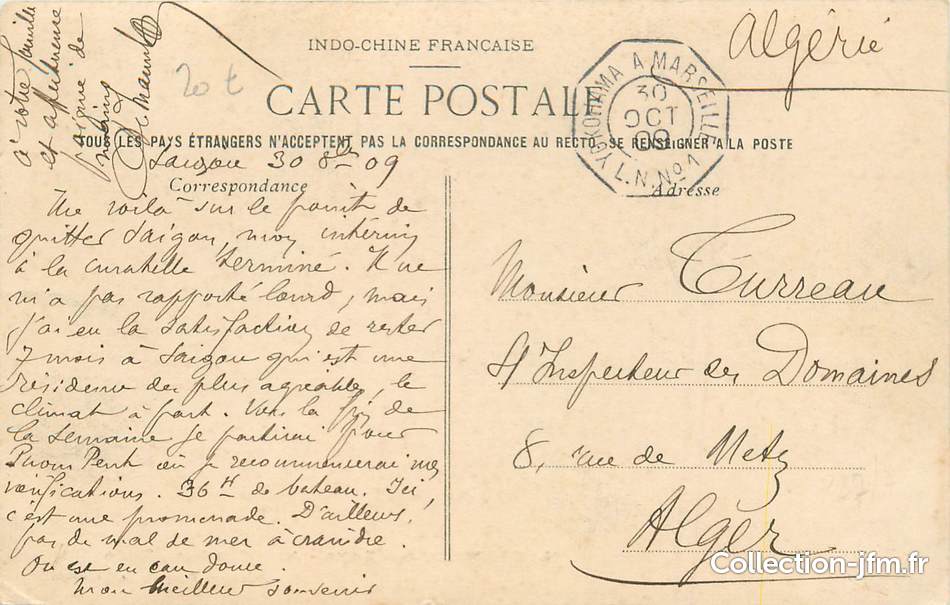 INDO-CHINE FRANÇAISE
CARTE POSTALE
TOUS LES PAYS ÉTRANGERS N'ACCEPTENT PAS LA CORRESPONDANCE AU RECTO. SE RENSEIGNER A LA POSTE
Correspondance
Saigon 30 8bre 09
Me voilà sur le point de
quitter Saigon, mon intérim
à la curatelle terminé. Il ne
m'a pas rapporté lourd, mais
j'ai eu la satisfaction de rester
7 mois à Saigon qui est une
résidence des plus agréables, le
climat à part. Vers la fin de
la semaine je partirai pour
Pnom Penh où je recommencerai mes
vérifications. 36 H de bateau. Ici
c'est une promenade. D'ailleurs
pas de mal de mer à craindre.
On est en eau douce.
Mon meilleur souvenir
à votre famille
et affectueuse
poignée de
mains
20 t
Algérie
YOKOHAMA A MARSEILLE
30
OCT
09
L.N. No 1
Adresse
Monsieur Turreau
S/Inspecteur des Domaines
8, rue de Metz
Alger
Collection-jfm.fr